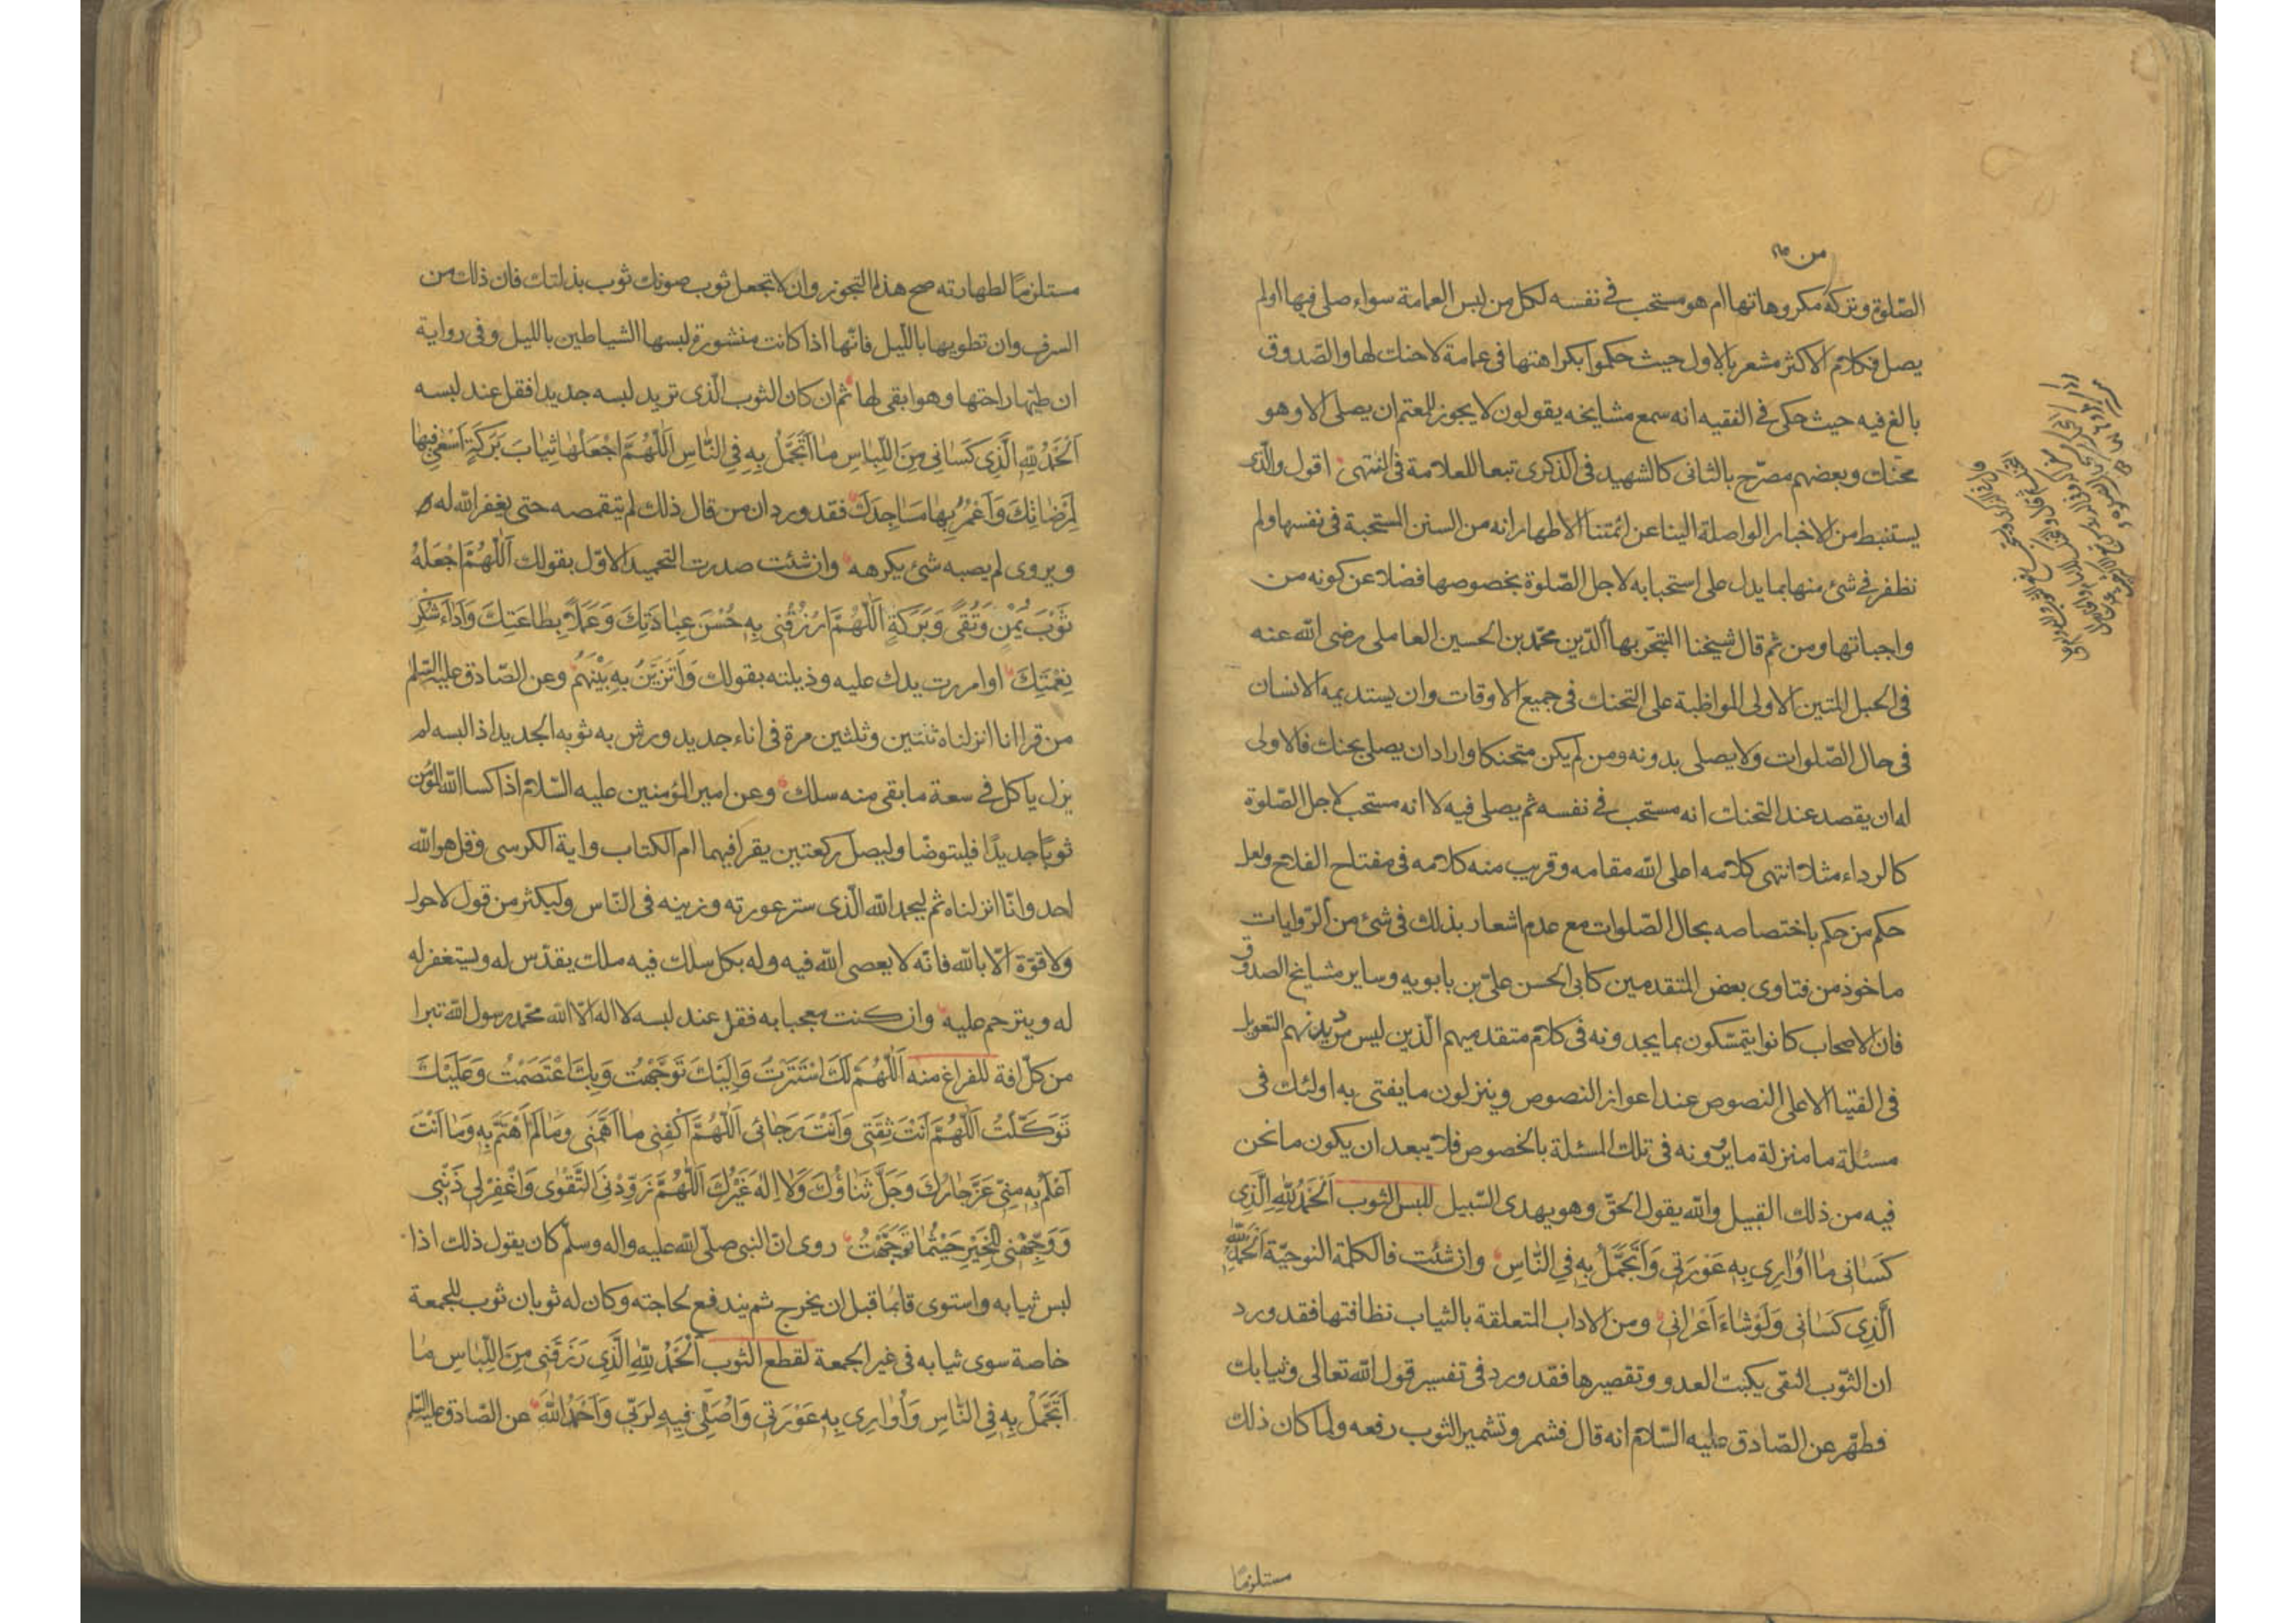 من
الصّلوة وتركه مكروهاتها ام هو مستحب فى نفسه لكل من لبس العمامة سواء صلى فيها اولم
يصل فكلام الاكثر مشعر بالاول حيث حكموا بكراهتها فى عمامة لاحنك لها والصّدوق
بالغ فيه حيث حكى فى الفقيه انه سمع مشايخه يقولون لا يجوز للمعتم ان يصلى الا وهو
محنك وبعضهم مصرّح بالثانى كالشهيد فى الذكرى تبعا للعلامة فى المنتهى اقول والّذى
يستنبط من الاخبار الواصلة الينا عن ائمتنا الاطهار انه من السنن المستحبة فى نفسها ولم
نظفر فى شئ منها بما يدل على استحبابه لاجل الصّلوة بخصوصها فضلا عن كونه من
واجباتها ومن ثم قال شيخنا المتبحّر بهاء الدّين محمّد بن الحسين العاملى رضى الله عنه
فى الحبل المتين الاولى المواظبة على التحنك فى جميع الاوقات وان يستديمه الانسان
فى حال الصّلوات ولا يصلى بدونه ومن لم يكن متحنكا واراد ان يصلى بحنك فالاولى
له ان يقصد عند التحنك انه مستحب فى نفسه ثم يصلى فيه لا انه مستحب لاجل الصّلوة
كالرداء مثلا انتهى كلامه اعلى الله مقامه وقريب منه كلامه فى مفتاح الفلاح ولعل
حكم من حكم باختصاصه بحال الصّلوات مع عدم اشعار بذلك فى شئ من الرّوايات
ماخوذ من فتاوى بعض المتقدمين كابى الحسن علىّ بن بابويه وساير مشايخ الصدوق
فان الاصحاب كانوا يتمسّكون بما يجدونه فى كلام متقدميهم الّذين ليس من ديدنهم التعويل
فى الفتيا الا على النصوص عند اعواز النصوص وينزلون ما يفتى به اولئك فى
مسئلة ما منزلة ما يروونه فى تلك المسئلة بالخصوص فلا يبعد ان يكون ما نحن
فيه من ذلك القبيل والله يقول الحقّ وهو يهدى السّبيل للبس الثوب اَلْحَمْدُ لِلّٰهِ الَّذِى
كَسَانِى مَا اُوَارِى بِهِ عَوْرَتِى وَاَتَجَمَّلُ بِهِ فِى النَّاسِ وان شئت فالكلمة النوحيّة اَلْحَمْدُ لِلّٰهِ
الَّذِى كَسَانِى وَلَوْ شَاءَ اَعْرَانِى ومن الاداب المتعلقة بالثياب نظافتها فقد ورد
ان الثّوب النقى يكبت العدو وتقصيرها فقد ورد فى تفسير قول الله تعالى وثيابك
فطهّر عن الصّادق عليه السّلام انه قال فشمر وتشمير الثوب رفعه ولما كان ذلك
مستلزمًا
مستلزمًا لطهارته صح هذا التجوز وان لا تجعل ثوب صونك ثوب بذلتك فان ذلك من
السرف وان تطويها بالليل فانّها اذا كانت منشورة لبسها الشياطين بالليل وفى رواية
ان طيّها راحتها وهو ابقى لها ثم ان كان الثوب الّذى تريد لبسه جديدا فقل عند لبسه
اَلْحَمْدُ لِلّٰهِ الَّذِى كَسَانِى مِنَ اللِّبَاسِ مَا اَتَجَمَّلُ بِهِ فِى النَّاسِ اَللّٰهُمَّ اجْعَلْهَا ثِيَابَ بَرَكَةٍ اَسْعٰى فِيهَا
لِمَرْضَاتِكَ وَاَعْمُرُ بِهَا مَسَاجِدَكَ فقد ورد ان من قال ذلك لم يتقمصه حتى يغفر الله له
ويروى لم يصبه شئ يكرهه وان شئت صدرت التحميد الاوّل بقولك اَللّٰهُمَّ اجْعَلْهُ
ثَوْبَ يُمْنٍ وَتُقًى وَبَرَكَةٍ اَللّٰهُمَّ ارْزُقْنِى بِهِ حُسْنَ عِبَادَتِكَ وَعَمَلًا بِطَاعَتِكَ وَاَدَاءَ شُكْرِ
نِعْمَتِكَ او امررت يدك عليه وذيلته بقولك وَاَتَزَيَّنُ بِهِ بَيْنَهُمْ وعن الصّادق عليه السّلم
من قرا انا انزلناه ثنتين وثلثين مرة فى اناء جديد ورش به ثوبه الجديد اذا لبسه لم
يزل ياكل فى سعة ما بقى منه سلك وعن امير المؤمنين عليه السّلام اذا كسا الله المؤمن
ثوبًا جديدًا فليتوضا وليصل ركعتين يقرا فيهما ام الكتاب واية الكرسى وقل هو الله
احد وانّا انزلناه ثم ليحمد الله الّذى ستر عورته وزينه فى النّاس وليكثر من قول لا حول
ولا قوّة الّا بالله فانّه لا يعصى الله فيه وله بكل سلك فيه ملك يقدّس له ويستغفر له
له ويترحم عليه وان كنت معجبا به فقل عند لبسه لا اله الّا الله محمّد رسول الله تبرا
من كلّ افة للفراغ منه اَللّٰهُمَّ لَكَ اسْتَتَرْتُ وَاِلَيْكَ تَوَجَّهْتُ وَبِكَ اعْتَصَمْتُ وَعَلَيْكَ
تَوَكَّلْتُ اَللّٰهُمَّ اَنْتَ ثِقَتِى وَاَنْتَ رَجَائِى اَللّٰهُمَّ اكْفِنِى مَا اَهَمَّنِى وَمَا لَمْ اَهْتَمَّ بِهِ وَمَا اَنْتَ
اَعْلَمُ بِهِ مِنِّى عَزَّ جَارُكَ وَجَلَّ ثَنَاؤُكَ وَلَا اِلٰهَ غَيْرُكَ اَللّٰهُمَّ زَوِّدْنِى التَّقْوٰى وَاغْفِرْ لِى ذَنْبِى
وَوَجِّهْنِى لِلْخَيْرِ حَيْثُمَا تَوَجَّهْتُ روى انّ النبى صلّى الله عليه واله وسلّم كان يقول ذلك اذا
لبس ثيابه واستوى قائما قبل ان يخرج ثم يندفع لحاجته وكان له ثوبان ثوب للجمعة
خاصة سوى ثيابه فى غير الجمعة لقطع الثوب اَلْحَمْدُ لِلّٰهِ الَّذِى رَزَقَنِى مِنَ اللِّبَاسِ مَا
اَتَجَمَّلُ بِهِ فِى النَّاسِ وَاُوَارِى بِهِ عَوْرَتِى وَاُصَلِّى فِيهِ لِرَبِّى وَاَحْمَدُ اللّٰهَ عن الصّادق عليه السّلم